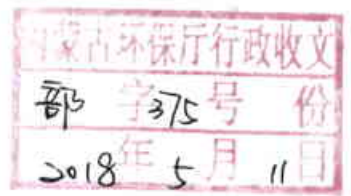 内蒙古环保厅行政收文
部 字 375 号 份
2018 年 5 月 11 日